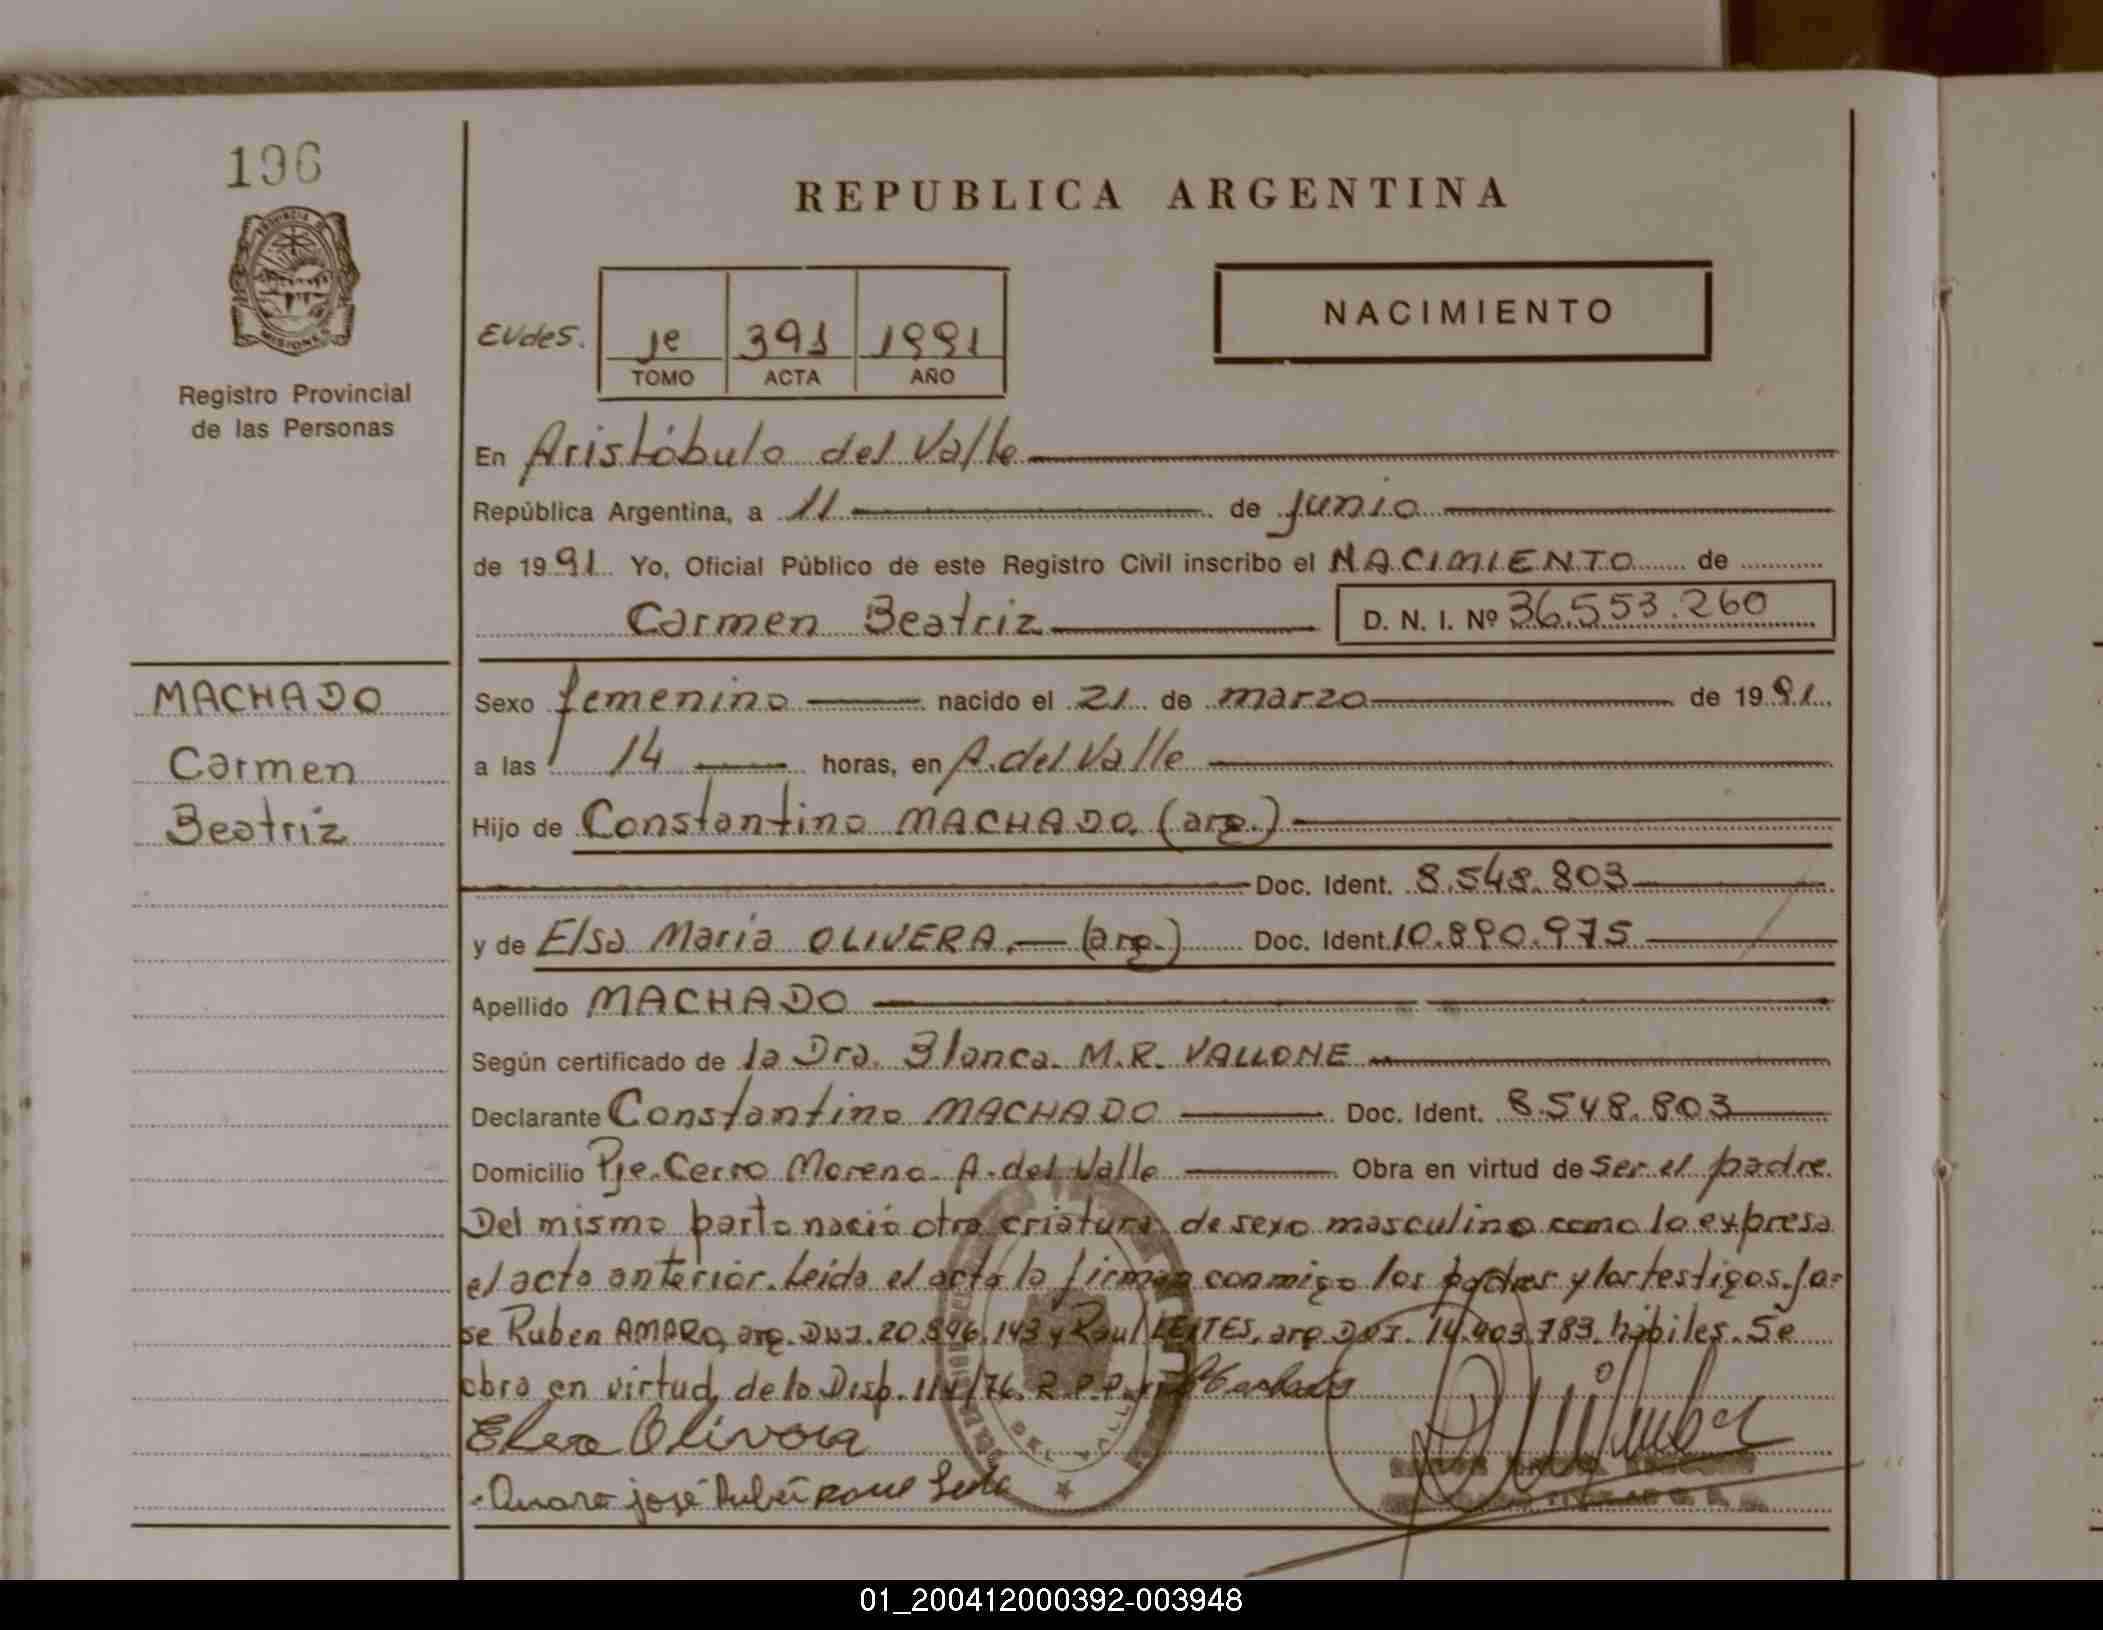 196
REPUBLICA ARGENTINA
PROVINCIA DE
MISIONES
Registro Provincial
de las Personas
EVdes.
1e 391 1991
TOMO ACTA AÑO
NACIMIENTO
En Aristóbulo del Valle
República Argentina, a 11 de junio
de 1991 Yo, Oficial Público de este Registro Civil inscribo el NACIMIENTO de
Carmen Beatriz D. N. I. Nº 36.553.260
MACHADO
Carmen
Beatriz
Sexo femenino nacido el 21 de marzo de 1991
a las 14 horas, en A. del Valle
Hijo de Constantino MACHADO. (arg.)
Doc. Ident. 8.548.803
y de Elsa Maria OLIVERA. (arg.) Doc. Ident. 10.890.975
Apellido MACHADO
Según certificado de la Dra. Blanca M.R. VALLONE
Declarante Constantino MACHADO Doc. Ident. 8.548.803
Domicilio Pje. Cerro Moreno. A. del Valle Obra en virtud de ser el padre.
Del mismo parto nació otra criatura de sexo masculino como lo expresa
el acta anterior. Leída el acta la firman conmigo los padres y los testigos. Jo=
se Ruben AMARO, arg. DNI. 20.896.143 y Raul LEITES, arg. DNI. 14.403.783. hábiles. Se
obra en virtud de la Disp. 111/76. R.P.P. Machado
Elsa Olivera
Amaro José Rubén
DEL VALLE
01_200412000392-003948